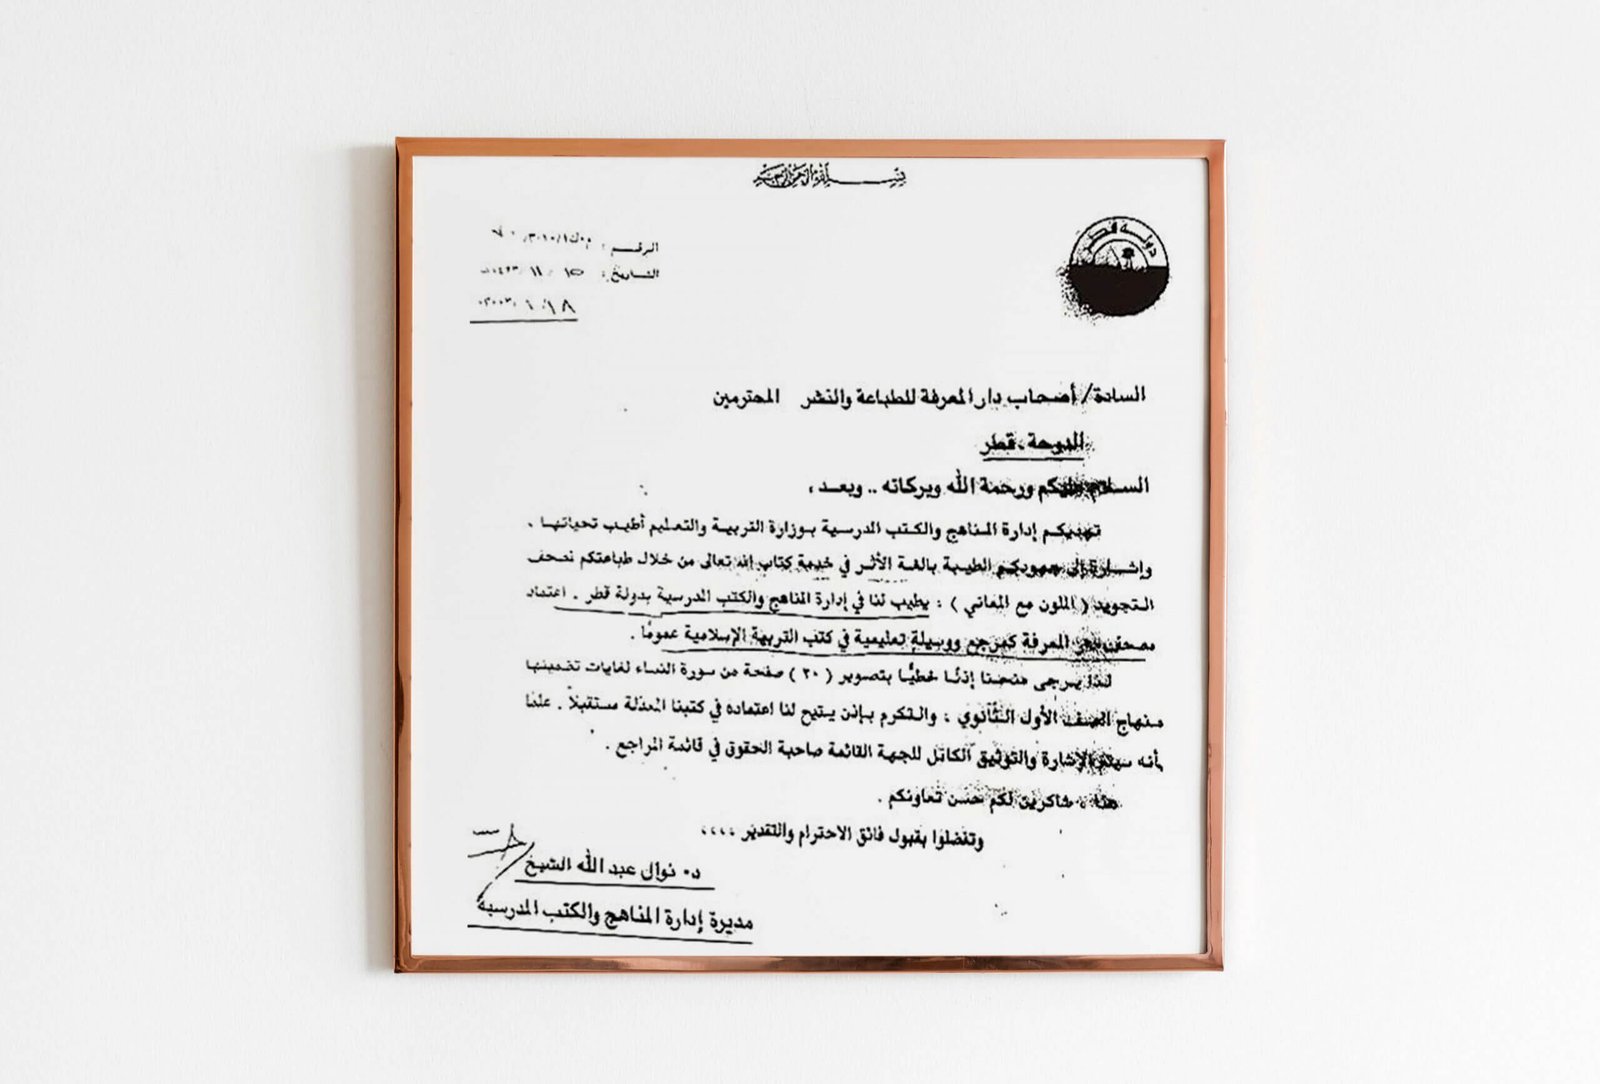 بسم الله الرحمن الرحيم
دولة قطر
الرقم :
التاريخ : ١٥ / ١١ /
السادة / أصحاب دار المعرفة للطباعة والنشر المحترمين
الدوحة ، قطر
السلام عليكم ورحمة الله وبركاته .. وبعد ،
تهديكم إدارة المناهج والكتب المدرسية بوزارة التربية والتعليم أطيب تحياتها ،
وإشارة إلى جهودكم الطيبة بالغة الأثر في خدمة كتاب الله تعالى من خلال طباعتكم لصحف
التجويد ( الملون مع المعاني ) : يطيب لنا في إدارة المناهج والكتب المدرسية بدولة قطر . اعتماد
مصحف دار المعرفة كمرجع ووسيلة تعليمية في كتب التربية الإسلامية عموماً .
لذا يرجى منحنا إذناً خطياً بتصوير ( ٢٠ ) صفحة من سورة النساء لغايات تضمينها
منهاج الصف الأول الثانوي ، والتكرم بإذن يتيح لنا اعتماده في كتبنا المعدلة مستقبلاً . علماً
بأنه سيتم الإشارة والتوثيق الكامل للجهة القائمة صاحبة الحقوق في قائمة المراجع .
هذا ، شاكرين لكم حسن تعاونكم .
وتفضلوا بقبول فائق الاحترام والتقدير ،،،،
د. نوال عبد الله الشيخ
مديرة إدارة المناهج والكتب المدرسية